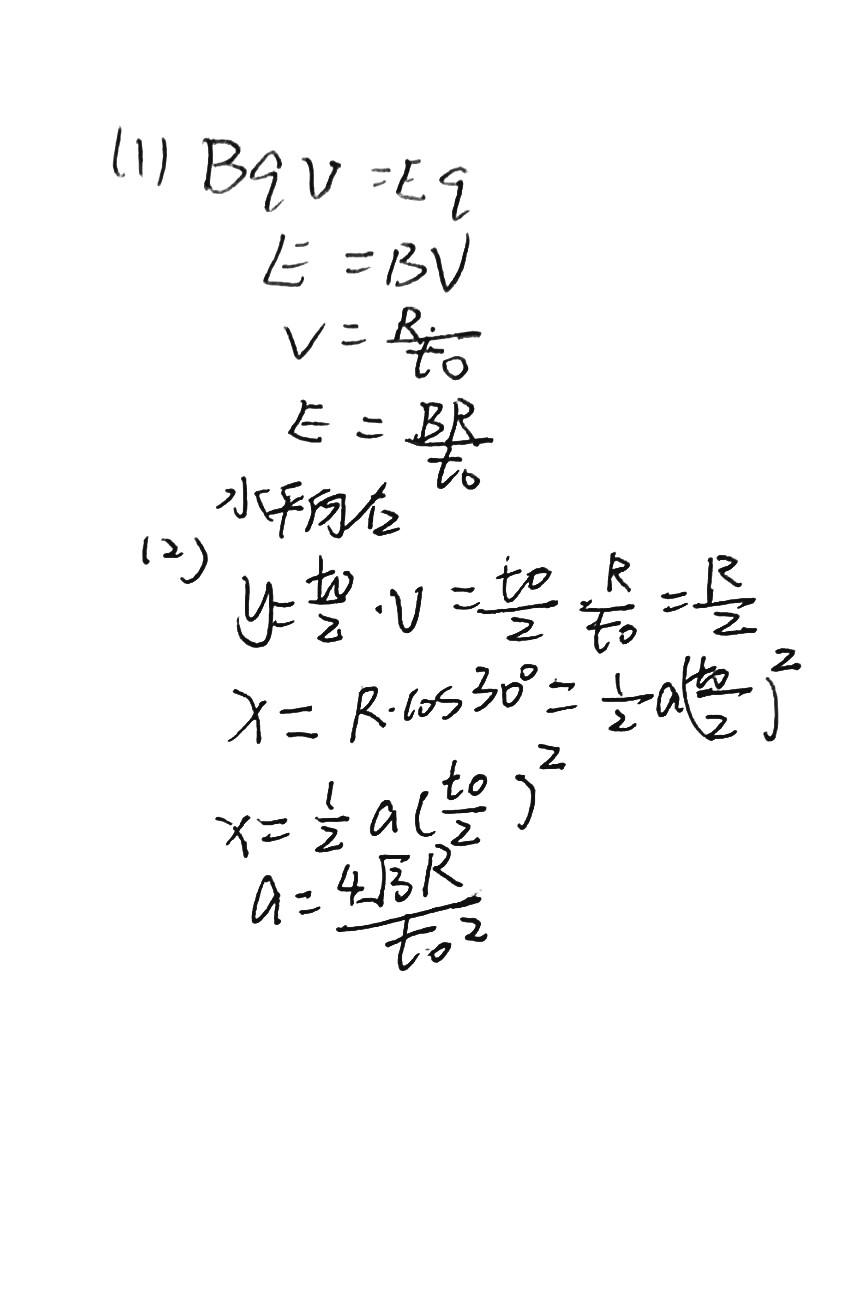 (1) Bqv=Eq
E=BV
v=R/t0
E=BR/t0
水平向右
(2)
y=t0/2·v=t0/2 R/t0=R/2
x=R·cos30°=1/2a(t0/2)²
x=1/2a(t0/2)²
a=4√3R/t0²